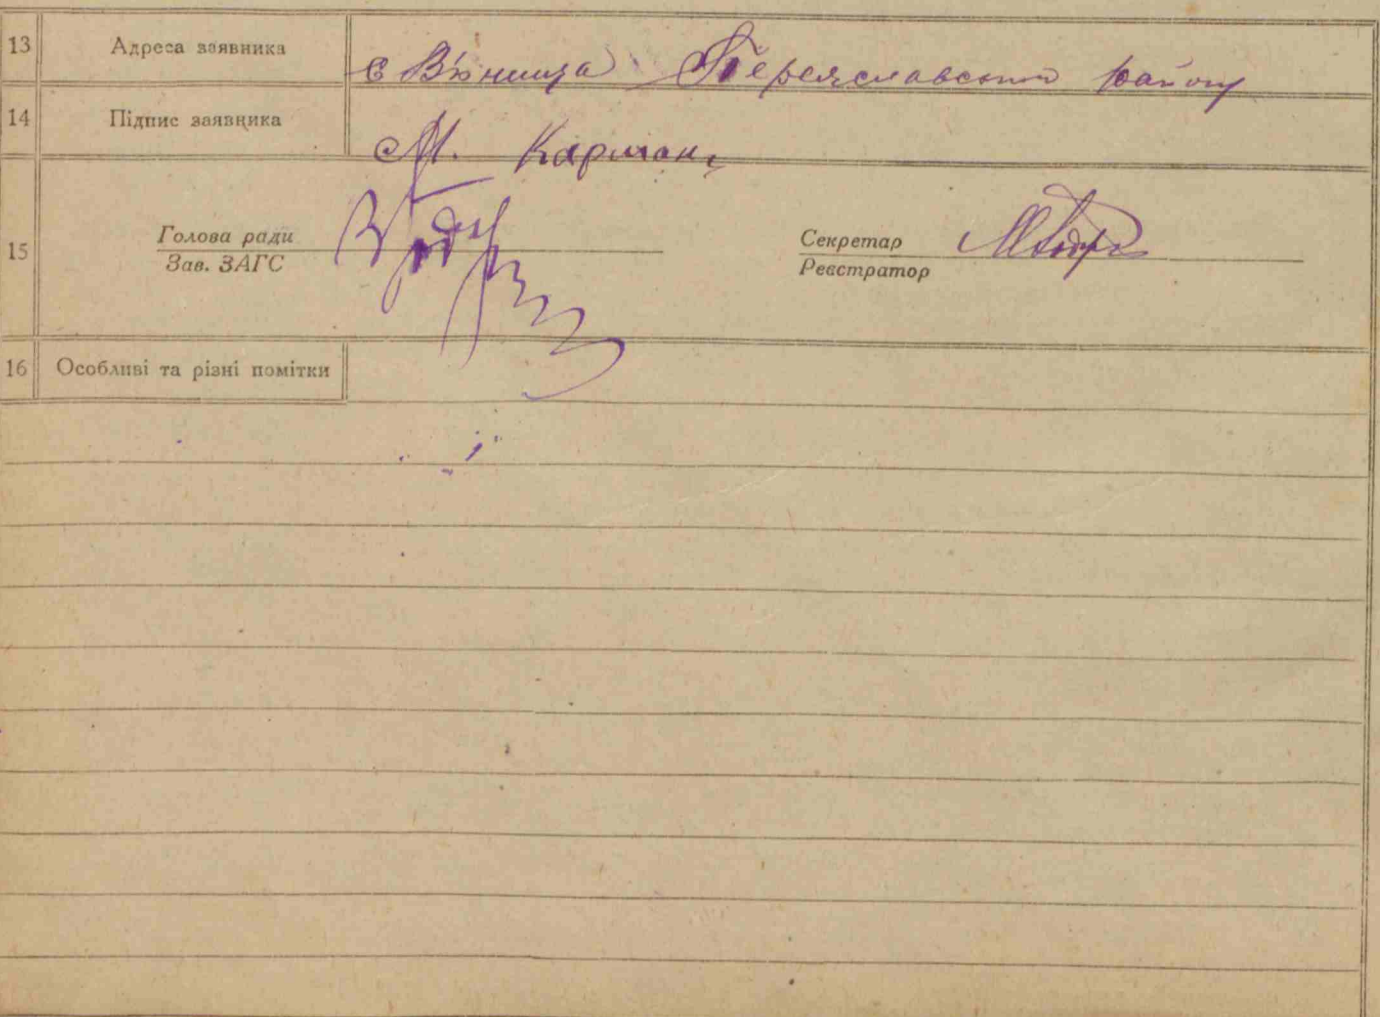 13 Адреса заявника с Вьюнища Переяславського району
14 Підпис заявника М. Карман
15 Голова ради Секретар
Зав. ЗАГС Реєстратор
16 Особливі та різні помітки